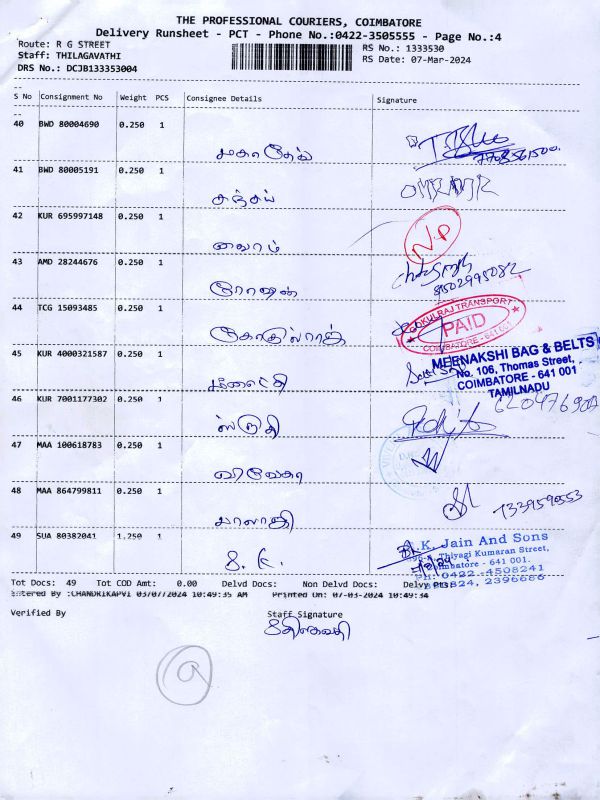 THE PROFESSIONAL COURIERS, COIMBATORE
Delivery Runsheet - PCT - Phone No.:0422-3505555 - Page No.:4
Route: R G STREET
RS No.: 1333530
Staff: THILAGAVATHI
RS Date: 07-Mar-2024
DRS No.: DCJB133353004
S No Consignment No Weight PCS Consignee Details Signature
40 BWD 80004690 0.250 1
மகாதேவ்
41 BWD 80005191 0.250 1
சஞ்சய்
42 KUR 695997148 0.250 1
NP
43 AMD 28244676 0.250 1
ரோஷன்
44 TCG 15093485 0.250 1
கோகுல்ராஜ்
GOKULRAJ TRANSPORT
PAID
COIMBATORE - 641 001
45 KUR 4000321587 0.250 1
MEENAKSHI BAG & BELTS
No. 106, Thomas Street,
COIMBATORE - 641 001
TAMILNADU
46 KUR 7001177302 0.250 1
ஸ்ருதி
47 MAA 100618783 0.250 1
48 MAA 864799811 0.250 1
பாலாஜி
49 SUA 80382041 1.250 1
S. K.
K. Jain And Sons
Thiyagi Kumaran Street,
Coimbatore - 641 001.
PH: 0422-4508241
2396686
Tot Docs: 49 Tot COD Amt: 0.00 Delvd Docs: Non Delvd Docs: Delvy Pts:
Entered By :CHANDRIKAPVI 03/07/2024 10:49:35 AM Printed On: 07-03-2024 10:49:34
Verified By
Staff Signature
9